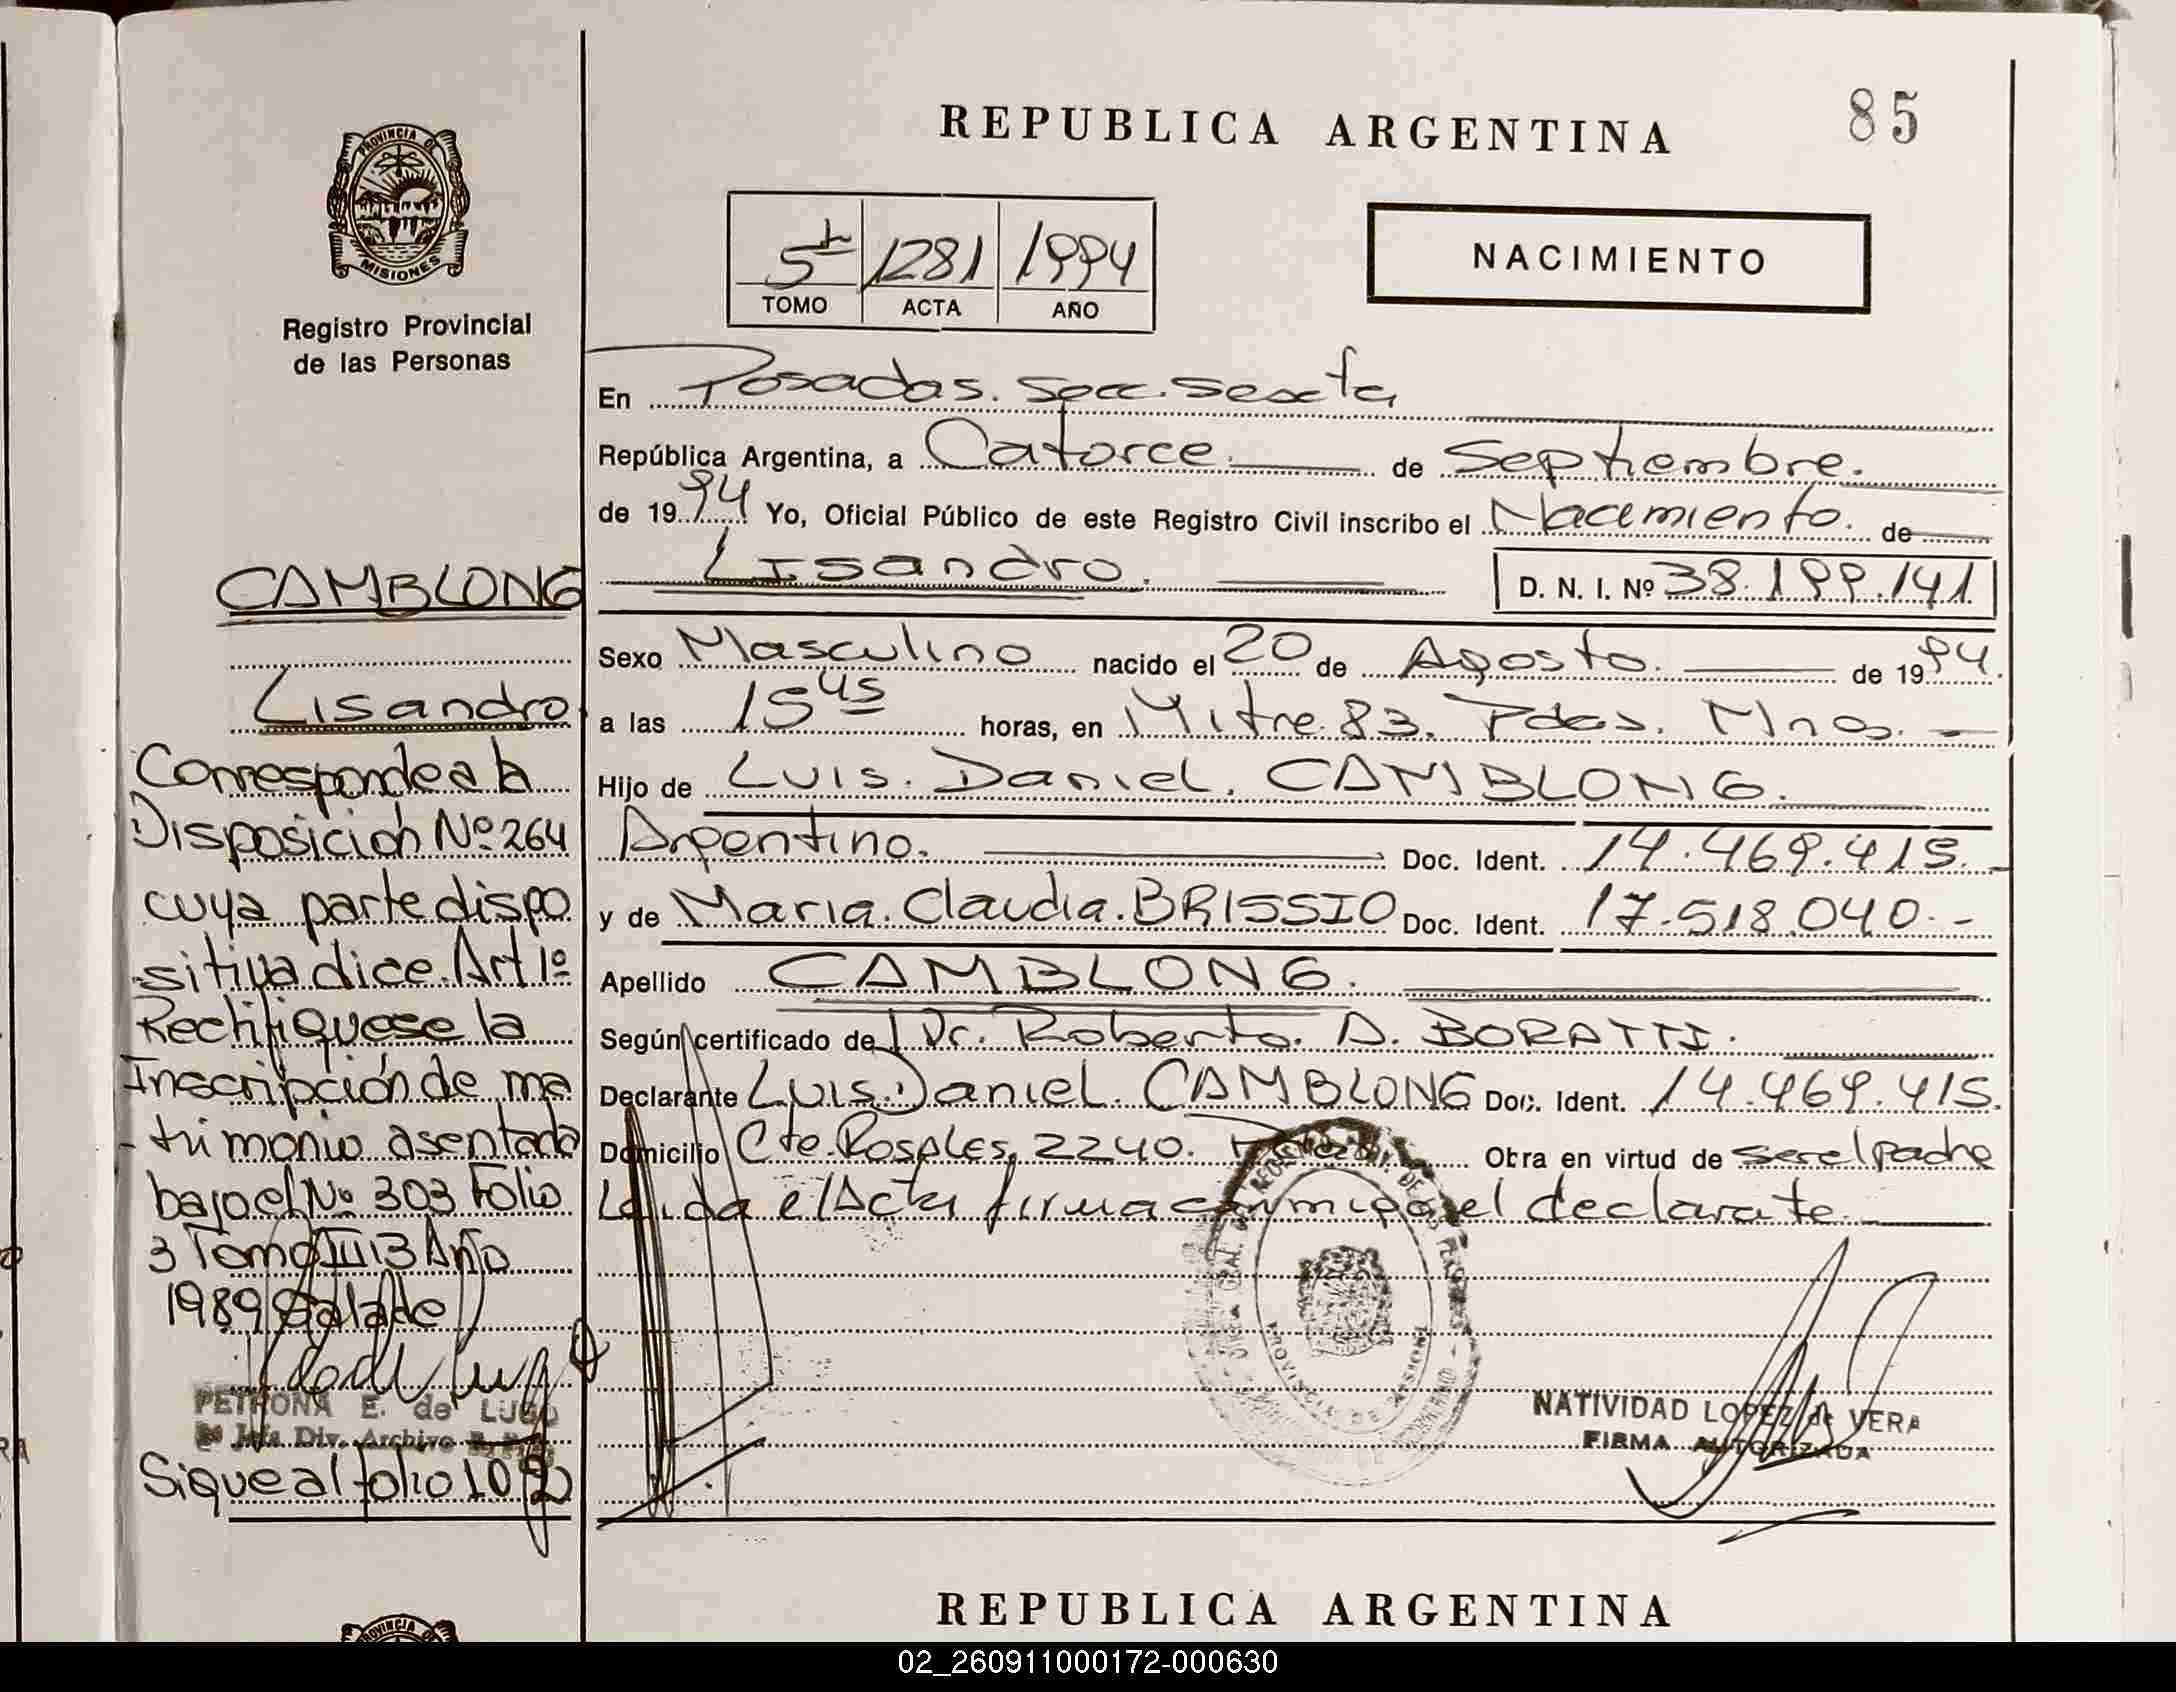 REPUBLICA ARGENTINA
85
PROVINCIA DE
MISIONES
Registro Provincial
de las Personas
5t 1281 1994
TOMO ACTA AÑO
NACIMIENTO
En Posadas. Secc. Sexta
República Argentina, a Catorce. de Septiembre.
de 1994 Yo, Oficial Público de este Registro Civil inscribo el Nacimiento. de
Lisandro.
D. N. I. Nº 38.199.141
Sexo Masculino nacido el 20 de Agosto. de 1994.
a las 15 45 horas, en Mitre 83. Pdas. Mnes.
Hijo de Luis. Daniel. CAMBLONG.
Argentino. Doc. Ident. 14.469.415.-
y de Maria. Claudia. BRISSIO Doc. Ident. 17.518.040.-
Apellido CAMBLONG.
Según certificado de Dr. Roberto. A. BORATTI.
Declarante Luis Daniel. CAMBLONG Doc. Ident. 14.469.415.
Domicilio Cte. Rosales. 2240. Otra en virtud de ser el padre
Leida el Acta firma conmigo el declarate.
NATIVIDAD LOPEZ de VERA
FIRMA AUTORIZADA
CAMBLONG
Lisandro
Corresponde a la
Disposición Nº 264
cuya parte dispo
sitiva dice. Art 1º
Rectifiquese la
Inscripción de ma
-trimonio asentada
bajo el Nº 303 Folio
3 Tomo III B Año
1989
PETRONA E. de LUGO
Jefa Div. Archivo
Sigue al folio 102
PROVINCIA DE MISIONES
REPUBLICA ARGENTINA
02_260911000172-000630